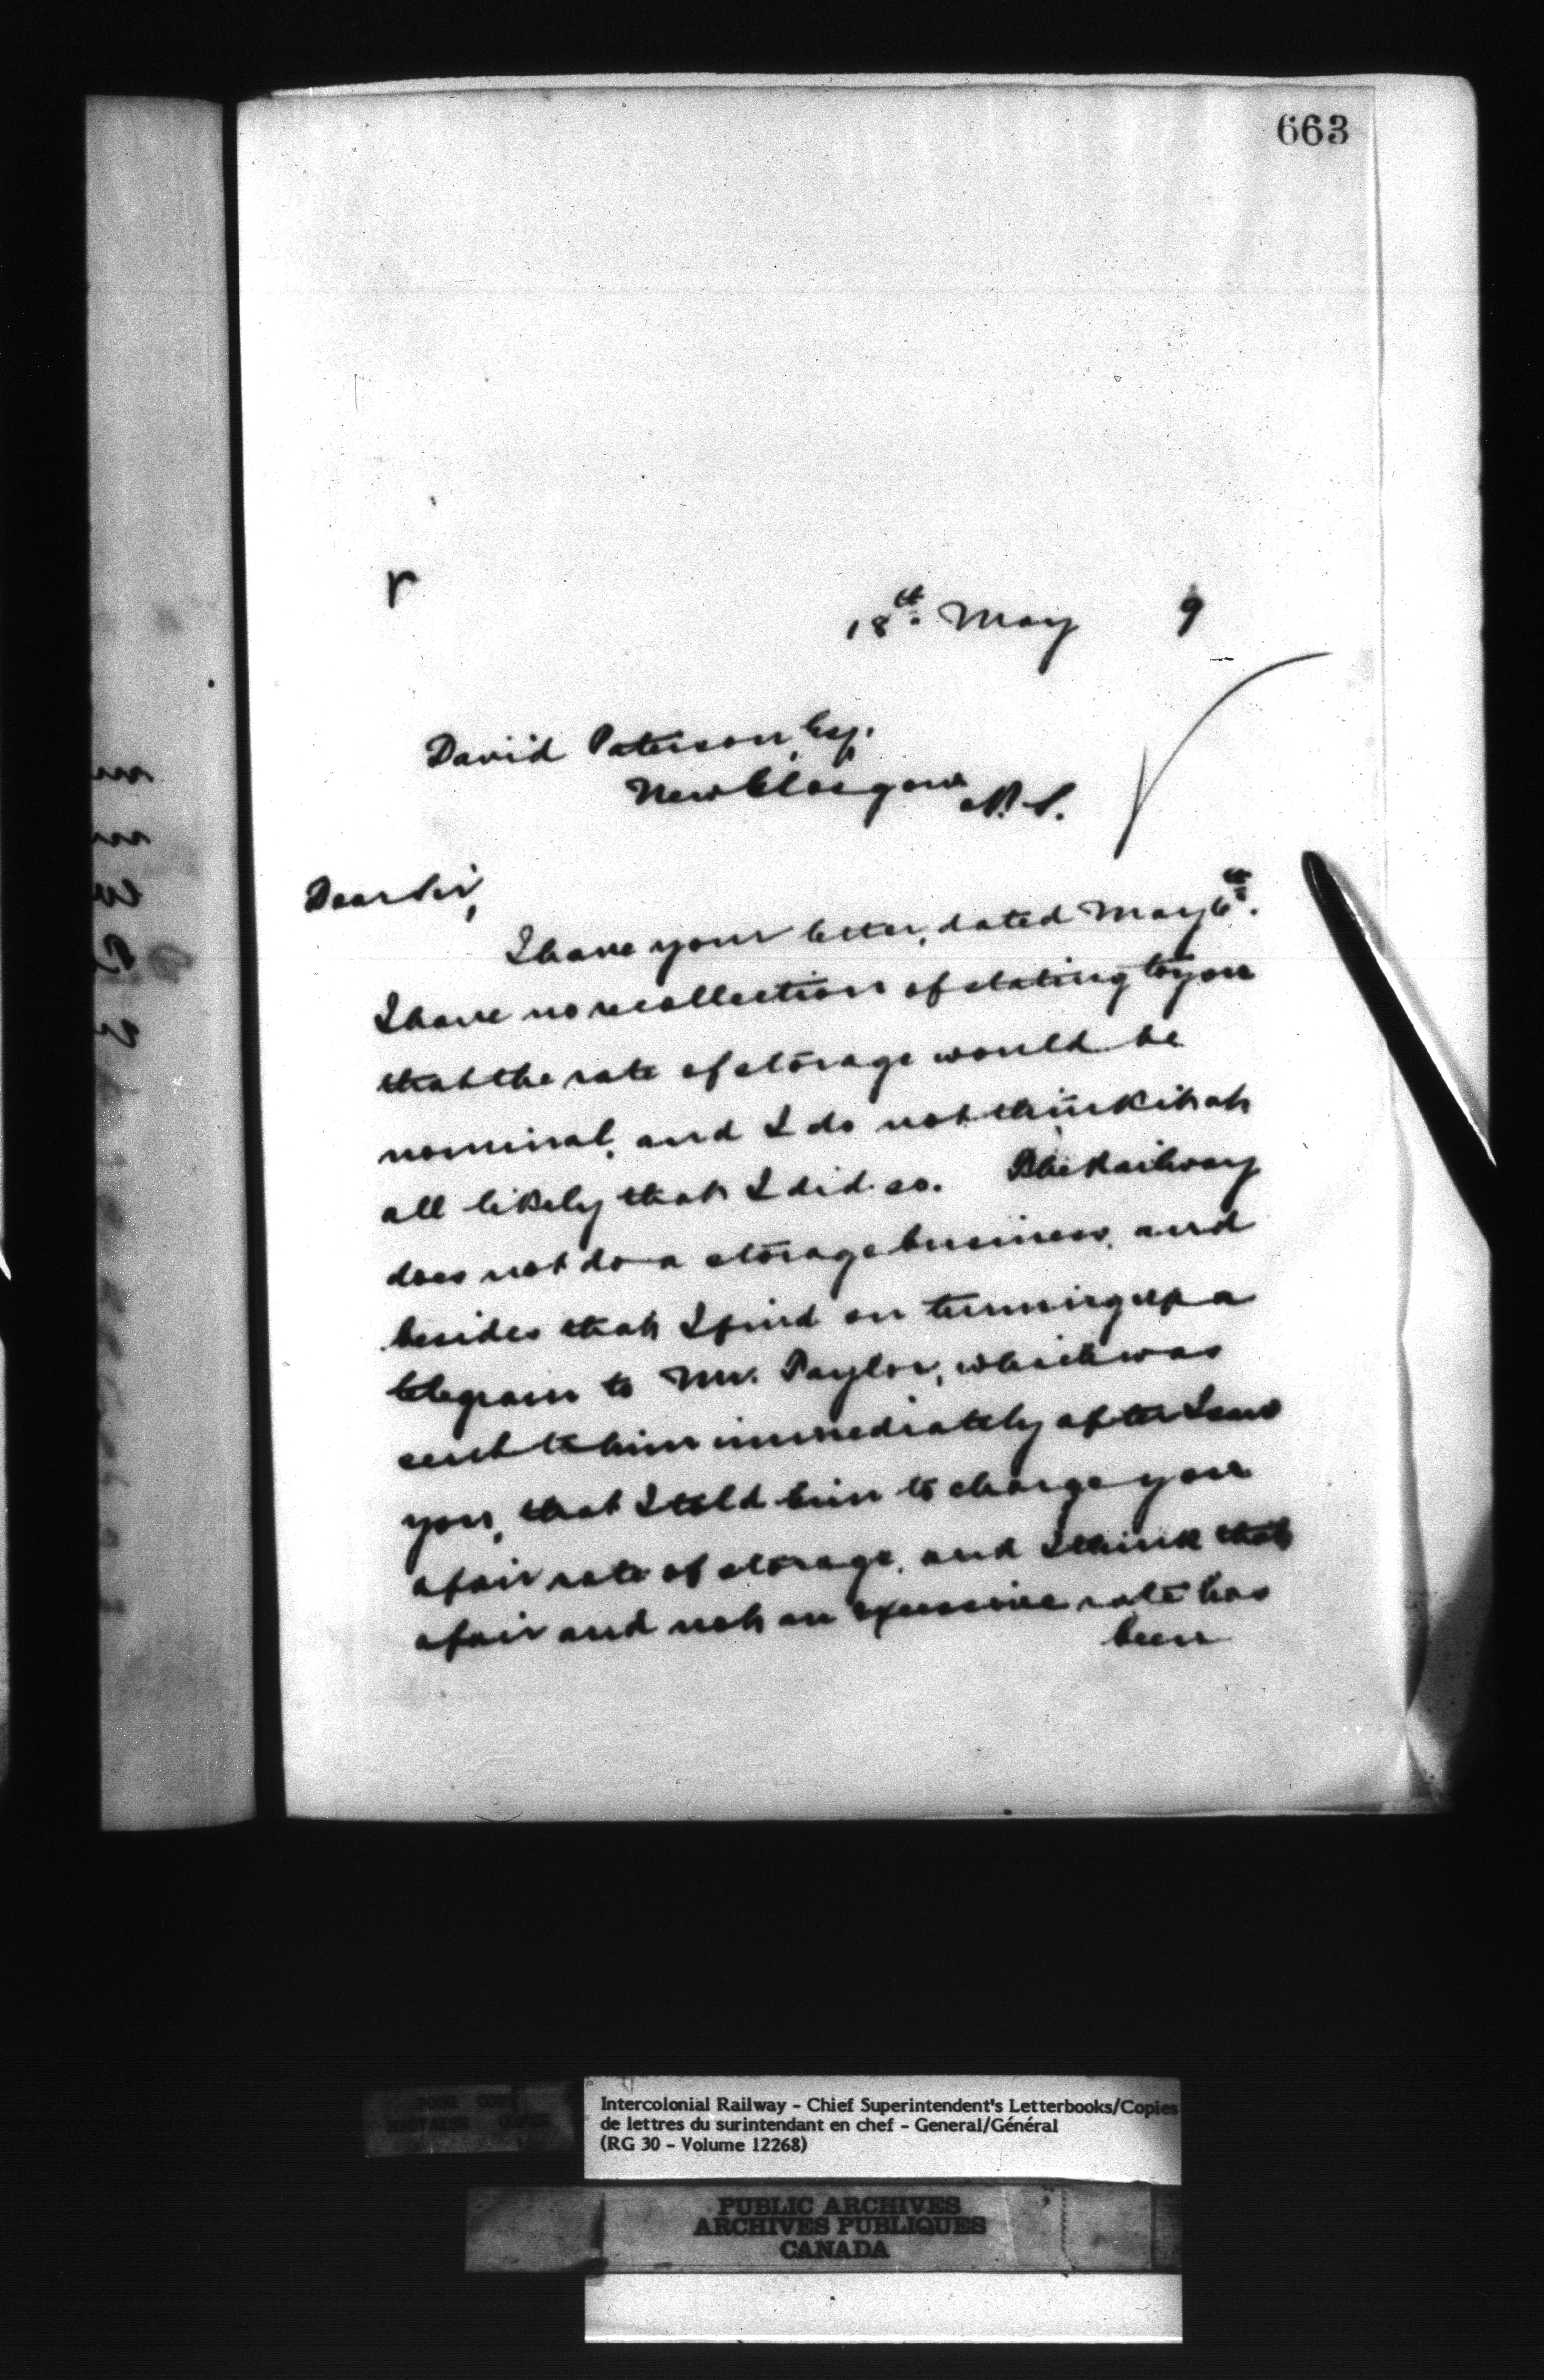 663
r
18th. May 9
David Paterson, Esq.
New Glasgow N.S.
Dear Sir,
I have your letter, dated May 6th.
I have no recollection of stating to you
that the rate of storage would be
nominal, and I do not think it at
all likely that I did so. The Railway
does not do a storage business, and
besides that I find on turning up a
telegram to Mr. Taylor, which was
sent to him immediately after I saw
you, that I told him to charge you
a fair rate of storage, and I think that
a fair and not an excessive rate has
been
POOR COPY
MAUVAISE COPIE
Intercolonial Railway - Chief Superintendent's Letterbooks/Copies
de lettres du surintendant en chef - General/Général
(RG 30 - Volume 12268)
PUBLIC ARCHIVES
ARCHIVES PUBLIQUES
CANADA